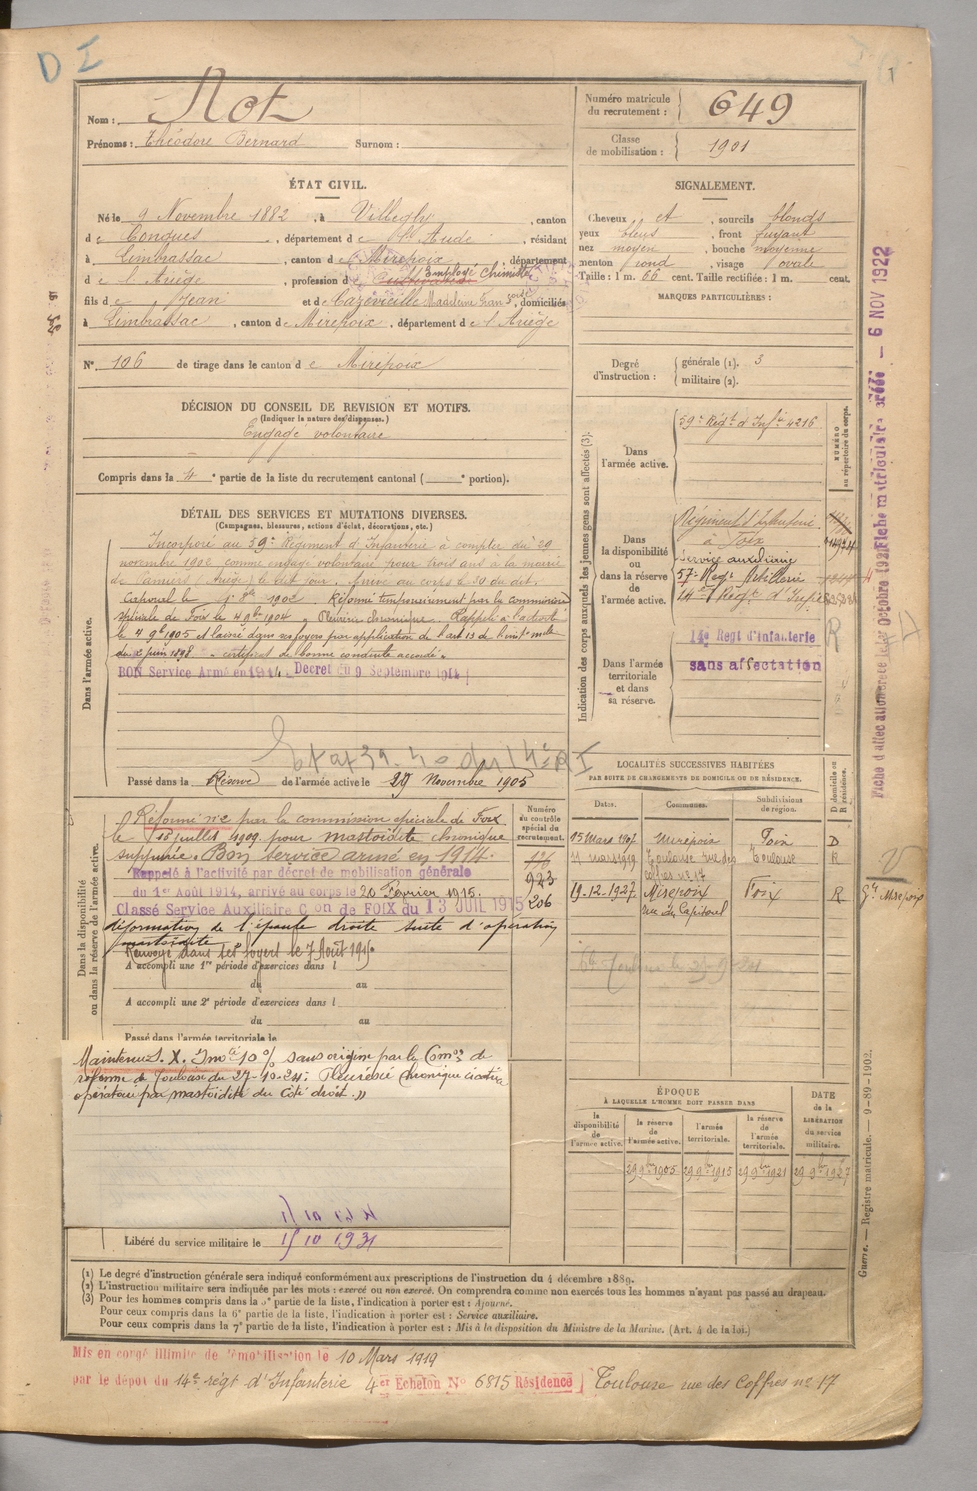 D I
1
Nom : Not
Prénoms : Théodore Bernard Surnom :
Numéro matricule du recrutement : 649
Classe de mobilisation : 1901
ÉTAT CIVIL.
Né le 9 Novembre 1882, à Villegly, canton
de Conques, département de l'Aude, résidant
à Limbrassac, canton de Mirepoix, département
de l'Ariège, profession de Cultivateur Employé Chimiste
fils de Jean et de Cazevieille Madeleine, domiciliés
à Limbrassac, canton de Mirepoix, département de l'Ariège
N° 106 de tirage dans le canton de Mirepoix
SIGNALEMENT.
Cheveux et, sourcils blonds
yeux bleus, front fuyant
nez moyen, bouche moyenne
menton rond, visage ovale
Taille : 1 m. 66 cent. Taille rectifiée : 1 m. cent.
MARQUES PARTICULIÈRES :
Degré d'instruction : générale (1). 3
militaire (2).
DÉCISION DU CONSEIL DE REVISION ET MOTIFS.
(Indiquer la nature des dispenses.)
Engagé volontaire
Compris dans la 4e partie de la liste du recrutement cantonal ( e portion).
DÉTAIL DES SERVICES ET MUTATIONS DIVERSES.
(Campagnes, blessures, actions d'éclat, décorations, etc.)
Dans l'armée active.
Incorporé au 59e Régiment d'Infanterie à compter du 29
novembre 1902 comme engagé volontaire pour trois ans à la mairie
de Pamiers (Ariège) le dit jour. Arrivé au corps le 30 du dit.
Caporal le Réformé temporairement par la commission
spéciale de Foix le 4 9bre 1904 Pleurésie chronique. Rappelé à l'activité
le 4 9bre 1905 et laissé dans ses foyers par application de
du 2 juin 1898 certificat de bonne conduite accordé.
BON Service Armé en 1914. Décret du 9 Septembre 1914
Passé dans la Réserve de l'armée active le 29 Novembre 1905
Indication des corps auxquels les jeunes gens sont affectés (3).
NUMÉRO au répertoire du corps.
Dans l'armée active.
59e Régt d'Infie 4216
Dans la disponibilité ou dans la réserve de l'armée active.
Régiment d'Infanterie
à Foix
service auxiliaire
57e Régt Artillerie
14e Régt d'Infie
Dans l'armée territoriale et dans sa réserve.
14e Regt d'Infanterie
sans affectation
R
Dans la disponibilité ou dans la réserve de l'armée active.
Réformé n°2 par la commission spéciale de Foix
le 16 juillet 1909 pour mastoïdite chronique
suppurée. Bon service armé en 1914.
Rappelé à l'activité par décret de mobilisation générale
du 1er Août 1914, arrivé au corps le 20 Février 1915.
Classé Service Auxiliaire Con de FOIX du 13 JUIL 1915
déformation de l'épaule droite suite d'opération
mastoïdite
Renvoyé dans ses foyers le 7 Août
A accompli une 1re période d'exercices dans l
du au
A accompli une 2e période d'exercices dans l
du au
Passé dans l'armée territoriale le
Numéro du contrôle spécial du recrutement.
923
206
LOCALITÉS SUCCESSIVES HABITÉES
PAR SUITE DE CHANGEMENTS DE DOMICILE OU DE RÉSIDENCE.
Dates. Communes. Subdivisions de région. D domicile ou R résidence.
15 Mars 1907 Mirepoix Foix D
11 mars 1919 Toulouse rue des Coffres n° 17 Toulouse R
19-12-1927 Mirepoix rue du Capitoul Foix R
Maintenu S. X. Imté 10 % sans origine par la Comon de
réforme de Toulouse du 27-10-24 : Pleurésie chronique cicatrice
opératoire par mastoïdite du côté droit. "
ÉPOQUE
À LAQUELLE L'HOMME DOIT PASSER DANS
la disponibilité de l'armée active.
la réserve de l'armée active.
l'armée territoriale.
la réserve de l'armée territoriale.
DATE de la LIBÉRATION du service militaire.
29 9bre 1905 29 9bre 1915 29 9bre 1921 29 9bre 1927
Libéré du service militaire le 15 10 1931
(1) Le degré d'instruction générale sera indiqué conformément aux prescriptions de l'instruction du 4 décembre 1889.
(2) L'instruction militaire sera indiquée par les mots : exercé ou non exercé. On comprendra comme non exercés tous les hommes n'ayant pas passé au drapeau.
(3) Pour les hommes compris dans la 5e partie de la liste, l'indication à porter est : Ajourné.
Pour ceux compris dans la 6e partie de la liste, l'indication à porter est : Service auxiliaire.
Pour ceux compris dans la 7e partie de la liste, l'indication à porter est : Mis à la disposition du Ministre de la Marine. (Art. 4 de la loi.)
Mis en congé illimité de démobilisation le 10 Mars 1919
par le dépôt du 14e régt d'Infanterie 4er Echelon N° 6815 Résidence Toulouse rue des Coffres n° 17
Guerre. — Registre matricule. — 9-89-1902.
Fiche matriculaire créée — 6 NOV 1922